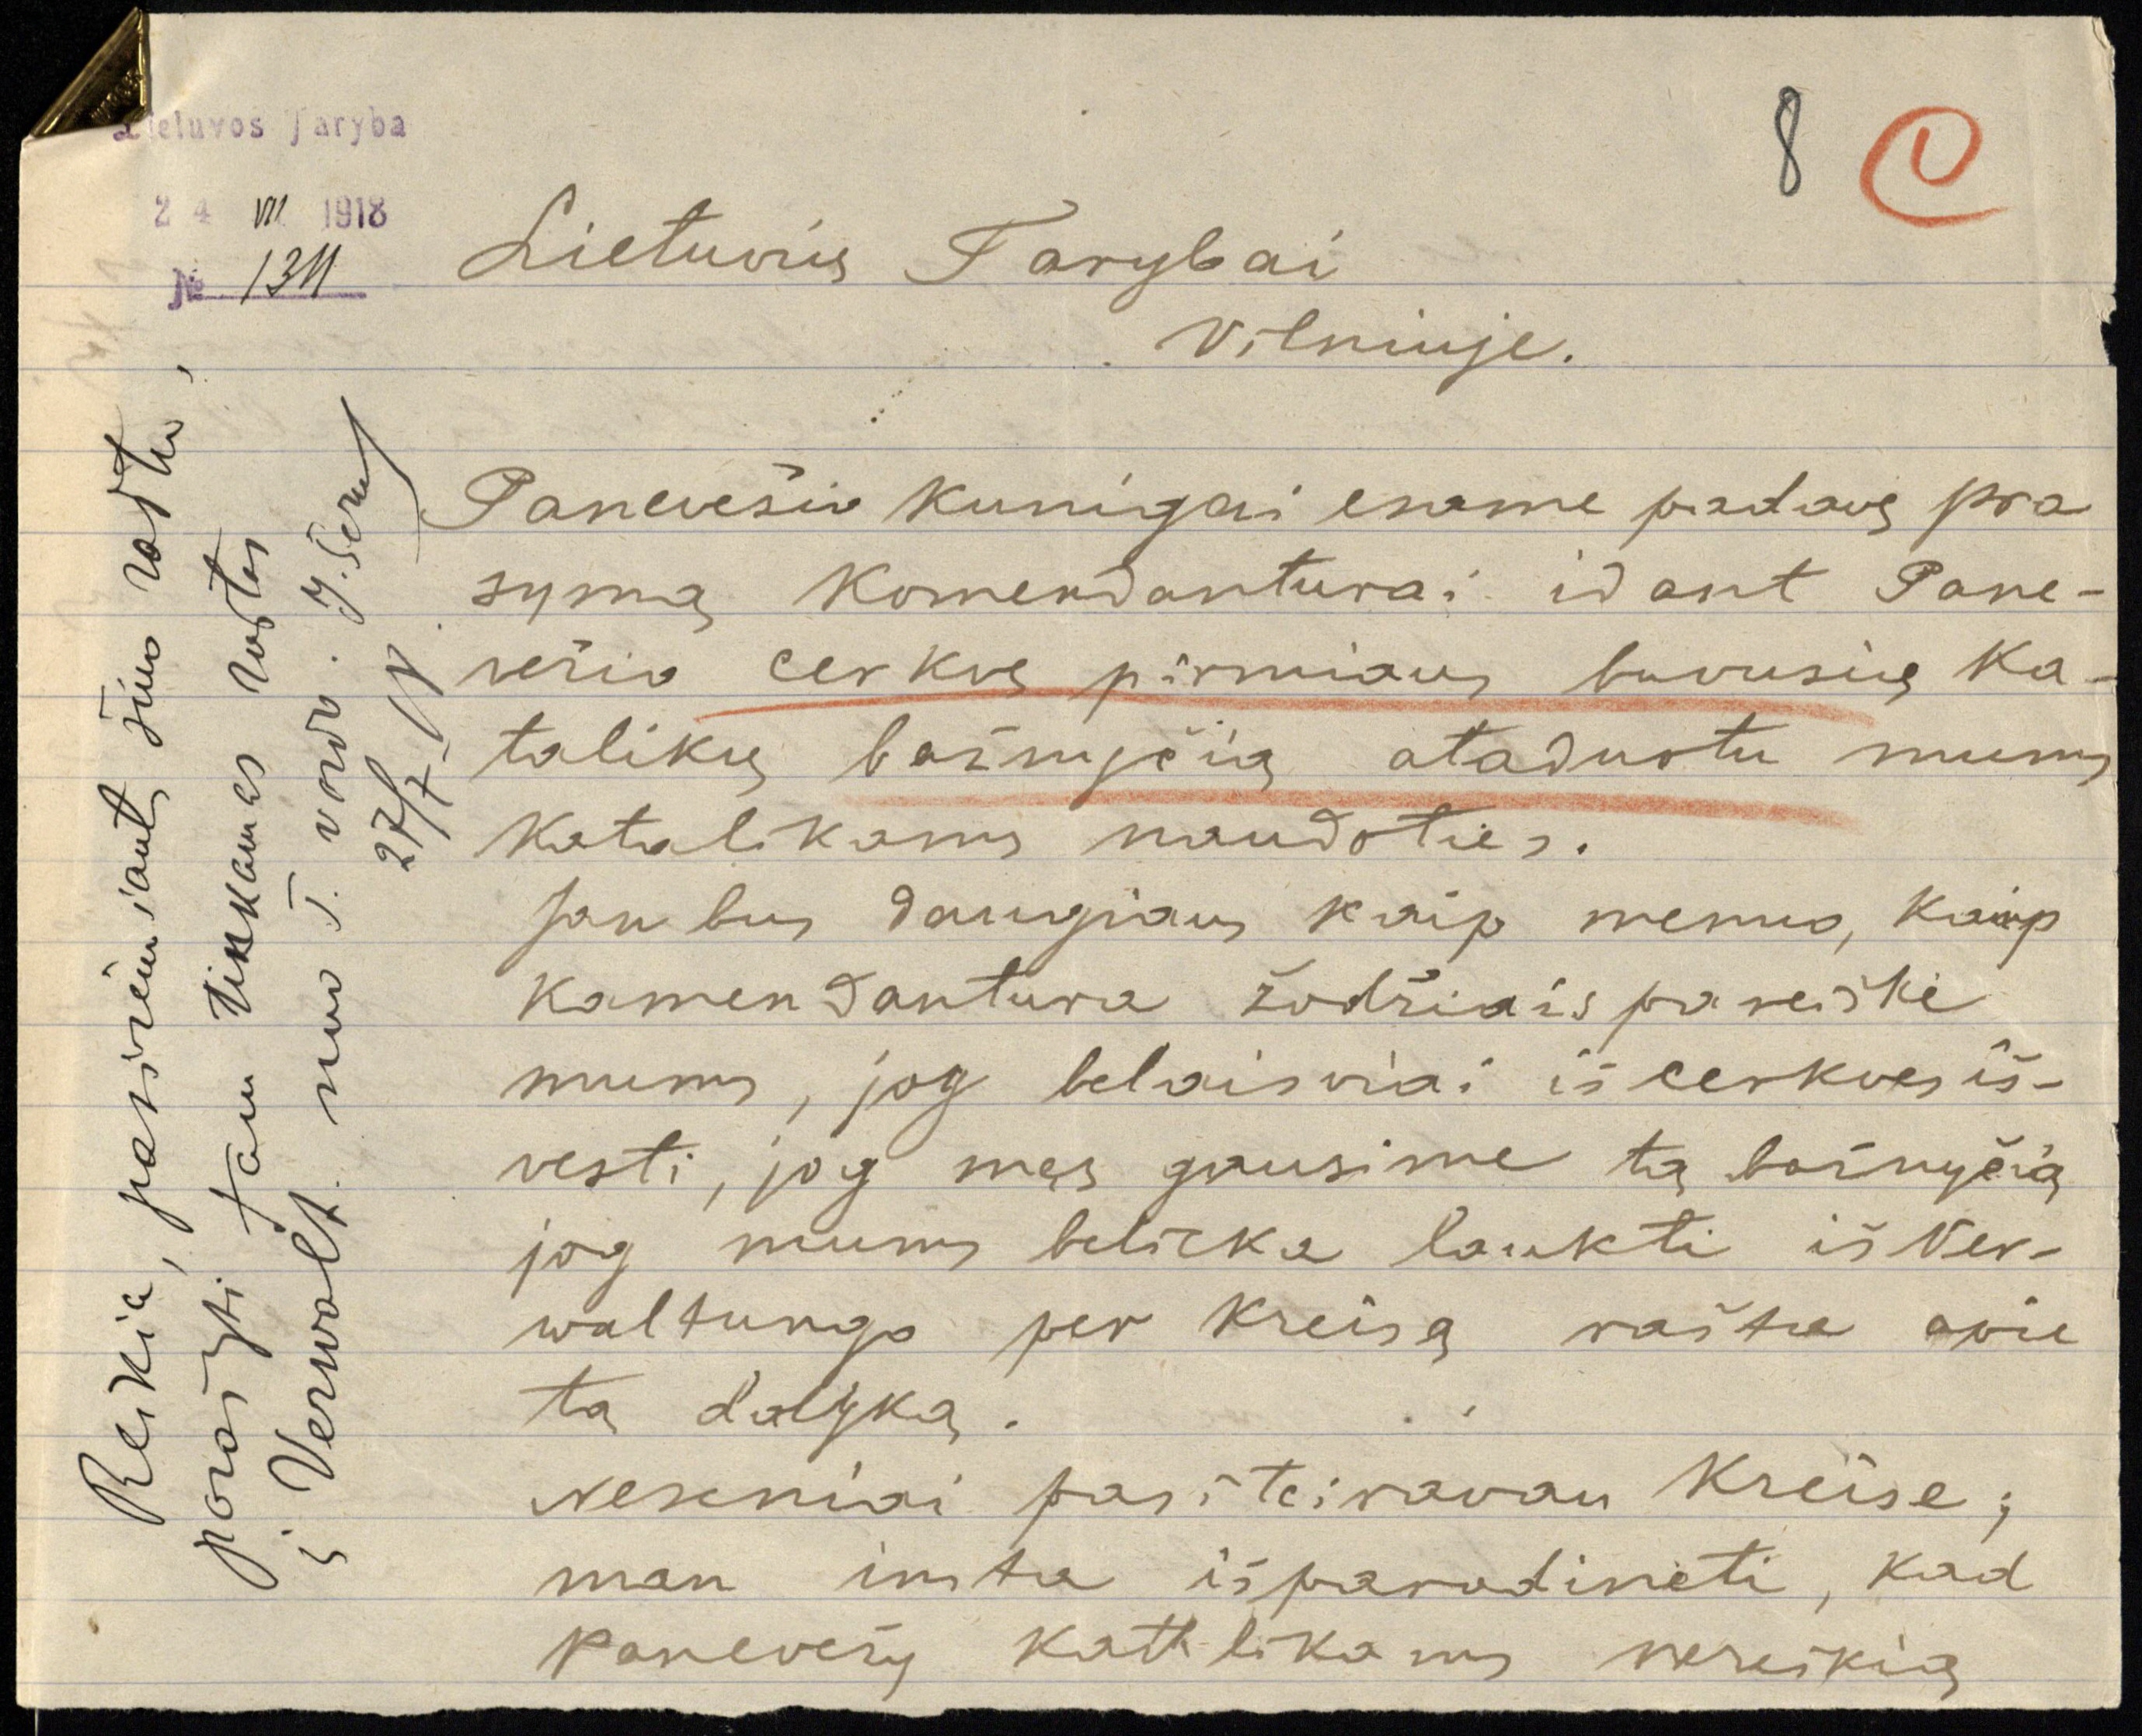 Lietuvos Taryba
24 VII 1918
№ 1311
8
Lietuvių Tarybai
Vilniuje.
Panevėšio Kunigai esame padavę pra
symą Komendanturai idant Pane-
vėšio cerkvę pirmiaus buvusią ka-
talikų bažnyčią ataduotu mums
Katalikams naudoties.
Jau bus daugiaus kaip menuo, kaip
Kamendantura žodžiais pareiškė
mums, jog belaisviai iš cerkves iš-
vesti, jog mes gausime tą bažnyčią
jog mums belieka laukti iš Ver-
waltungo per Kreisą rašta apie
tą dalyką.
Neseniai pasiteiravau Kreise;
man imta išparodineti, kad
Panevėžy katalikams nereikią
Reikia, pasiremiant šiuo raštu,
parašyti tam tikkamas raštas
į Verwalt. nuo T. vardo. J. Šern
27/7-18.